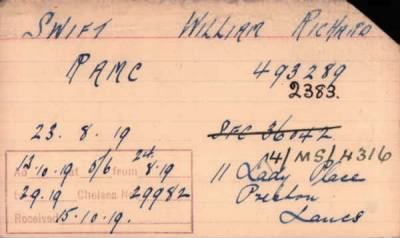 SWIFT WILLIAM RICHARD
RAMC 493289
2383.
23. 8. 19 SFC 36042
14/MS/4316
12.10.19 5/6 from 24. 8.19
11 Lady Place
29.19 Chelsea No 29982
Preston
Received 15.10.19.
Lancs